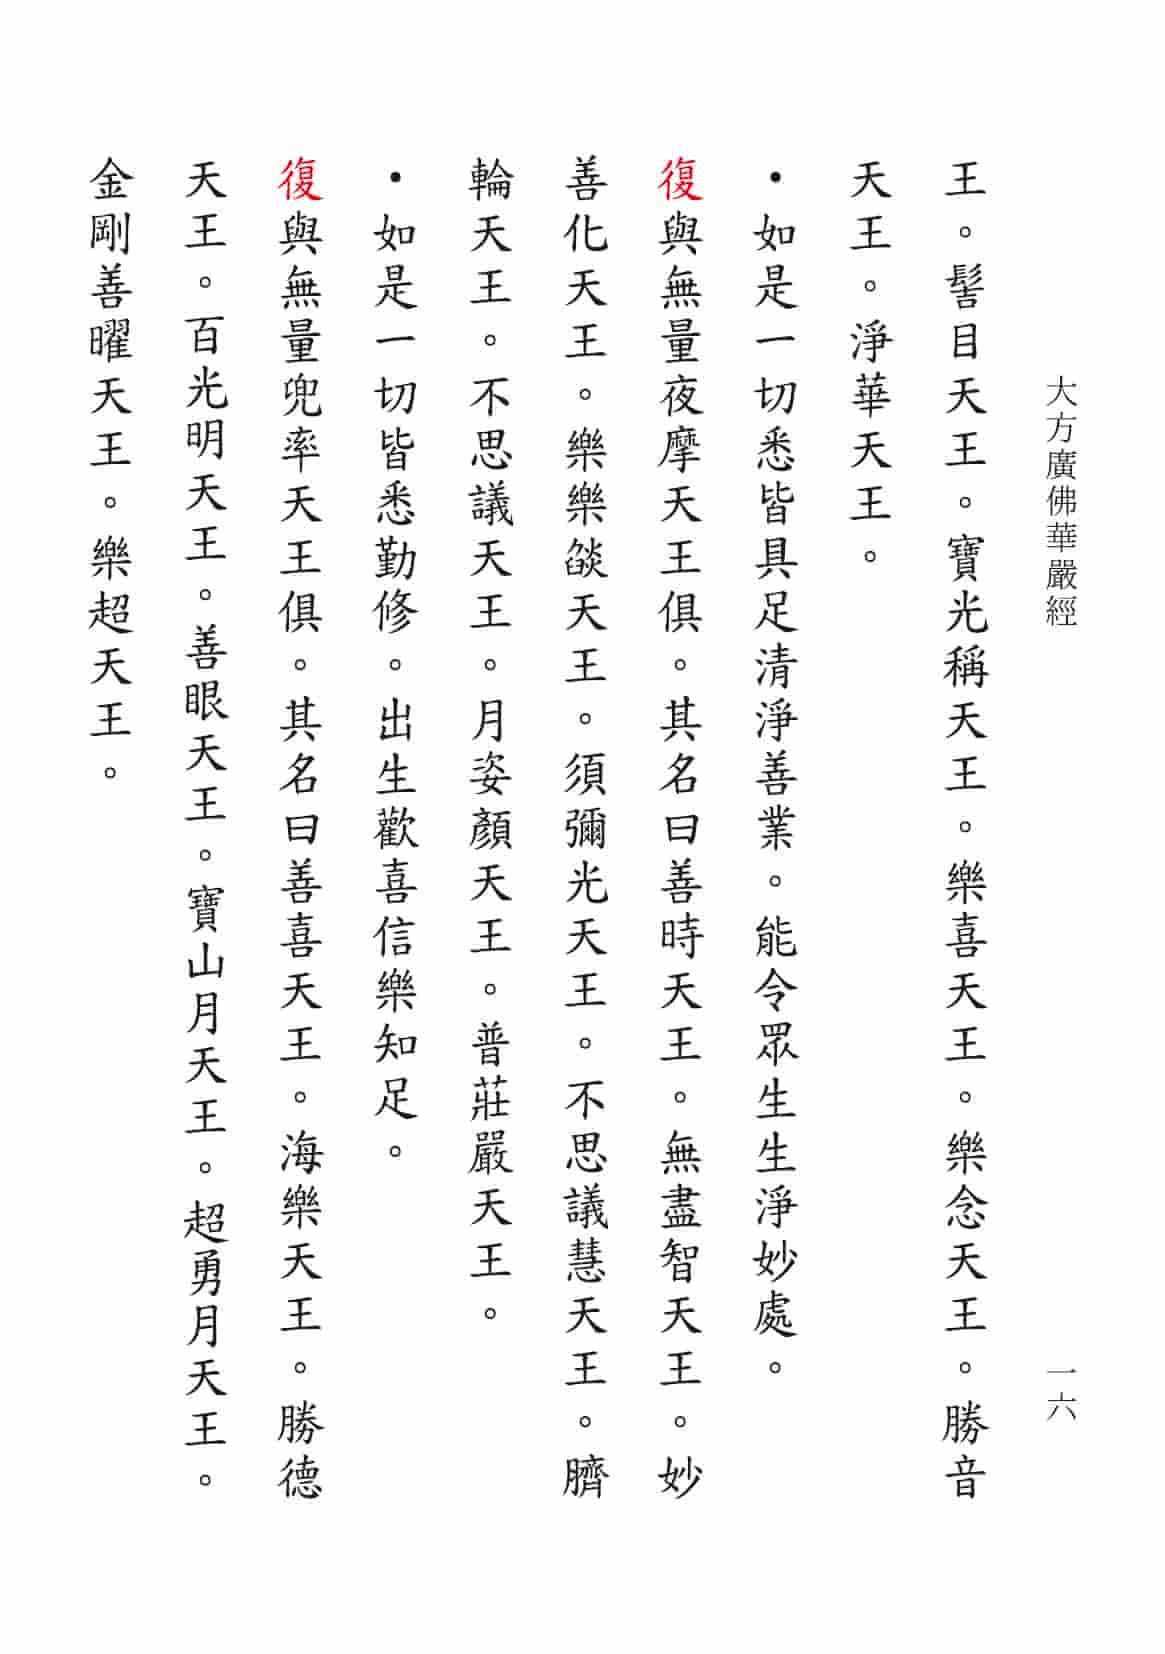 大方廣佛華嚴經
一六
王。髻目天王。寶光稱天王。樂喜天王。樂念天王。勝音
天王。淨華天王。
•如是一切悉皆具足清淨善業。能令眾生生淨妙處。
復與無量夜摩天王俱。其名曰善時天王。無盡智天王。妙
善化天王。樂樂燄天王。須彌光天王。不思議慧天王。臍
輪天王。不思議天王。月姿顏天王。普莊嚴天王。
•如是一切皆悉勤修。出生歡喜信樂知足。
復與無量兜率天王俱。其名曰善喜天王。海樂天王。勝德
天王。百光明天王。善眼天王。寶山月天王。超勇月天王。
金剛善曜天王。樂超天王。